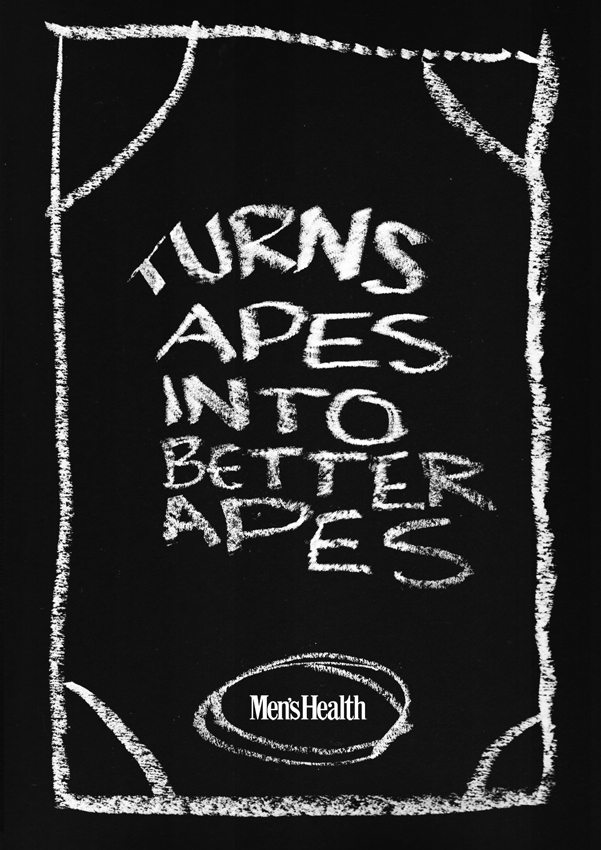 TURNS
APES
INTO
BETTER
APES
Men's Health